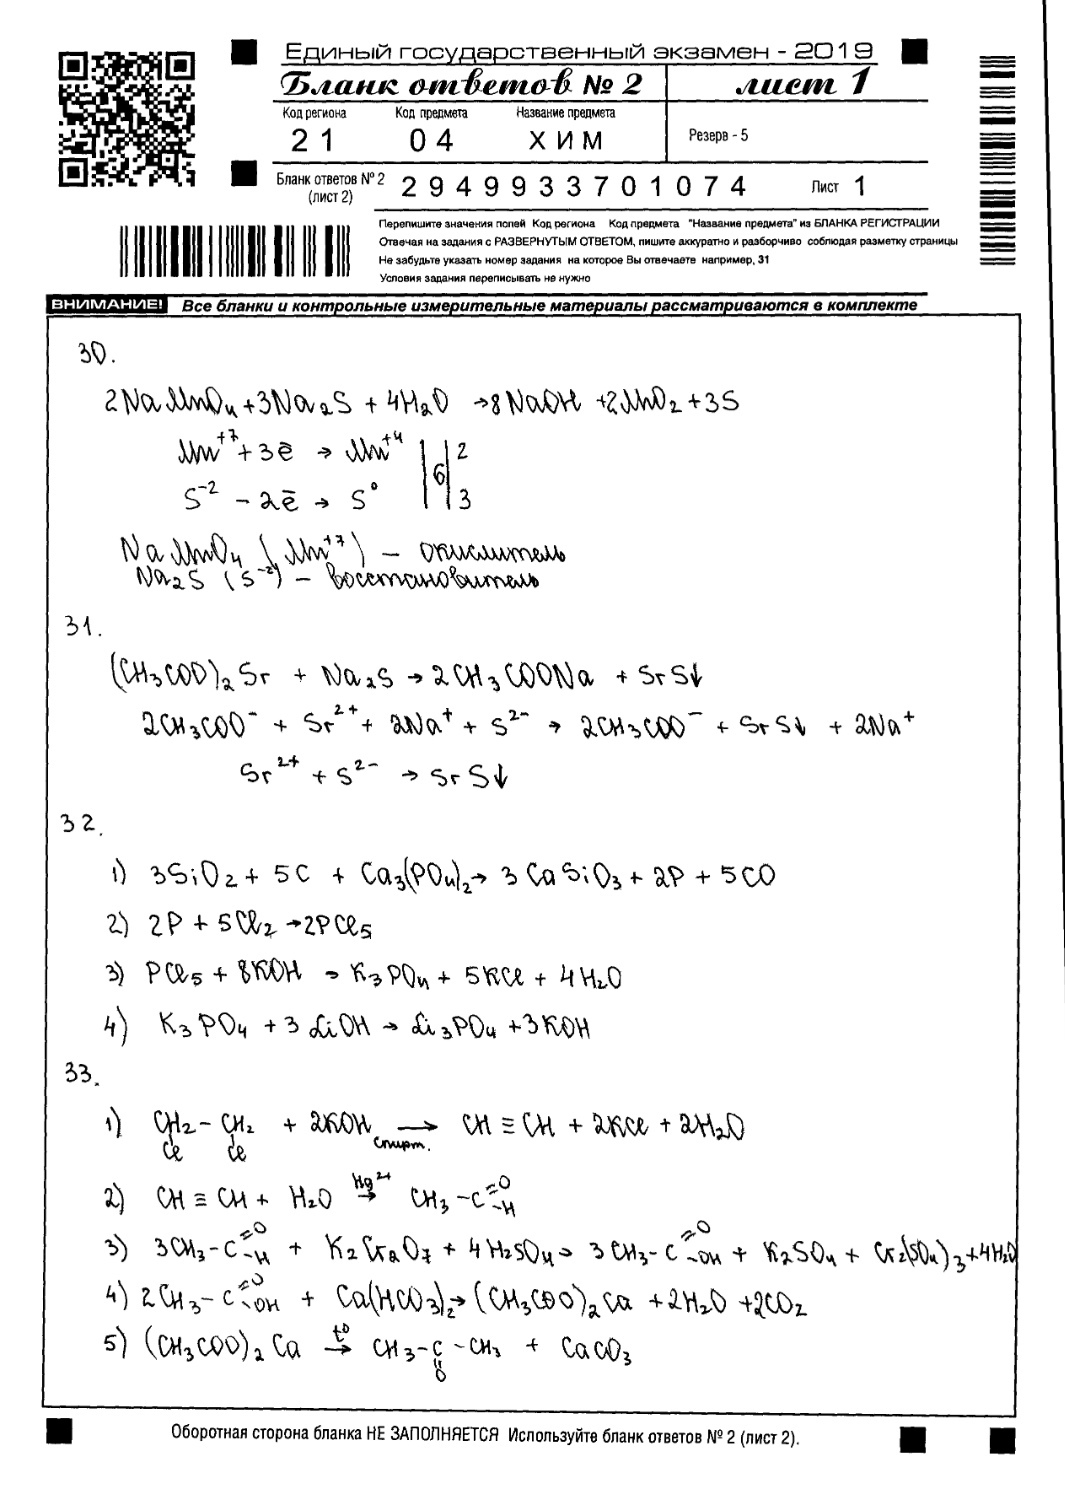 Единый государственный экзамен - 2019
Бланк ответов № 2 лист 1
Код региона Код предмета Название предмета
21 04 ХИМ Резерв - 5
Бланк ответов № 2 (лист 2) 2949933701074 Лист 1
Перепишите значения полей Код региона Код предмета "Название предмета" из БЛАНКА РЕГИСТРАЦИИ
Отвечая на задания с РАЗВЕРНУТЫМ ОТВЕТОМ, пишите аккуратно и разборчиво соблюдая разметку страницы
Не забудьте указать номер задания на которое Вы отвечаете например, 31
Условия задания переписывать не нужно
ВНИМАНИЕ! Все бланки и контрольные измерительные материалы рассматриваются в комплекте
30.
2NaMnO₄ + 3Na₂S + 4H₂O → 8NaOH + 2MnO₂ + 3S
Mn⁺⁷ + 3ē → Mn⁺⁴ | 6 | 2
S⁻² - 2ē → S⁰ | 3
NaMnO₄ (Mn⁺⁷) – окислитель
Na₂S (S⁻²) – восстановитель
31.
(CH₃COO)₂Sr + Na₂S → 2CH₃COONa + SrS↓
2CH₃COO⁻ + Sr²⁺ + 2Na⁺ + S²⁻ → 2CH₃COO⁻ + SrS↓ + 2Na⁺
Sr²⁺ + S²⁻ → SrS↓
32.
1) 3SiO₂ + 5C + Ca₃(PO₄)₂ → 3CaSiO₃ + 2P + 5CO
2) 2P + 5Cl₂ → 2PCl₅
3) PCl₅ + 8KOH → K₃PO₄ + 5KCl + 4H₂O
4) K₃PO₄ + 3LiOH → Li₃PO₄ + 3KOH
33.
1) CH₂ – CH₂ + 2KOH → CH ≡ CH + 2KCl + 2H₂O
Cl Cl спирт.
2) CH ≡ CH + H₂O Hg²⁺ → CH₃ – C =O –H
3) 3CH₃ – C =O –H + K₂Cr₂O₇ + 4H₂SO₄ → 3CH₃ – C =O –OH + K₂SO₄ + Cr₂(SO₄)₃ + 4H₂O
4) 2CH₃ – C =O –OH + Ca(HCO₃)₂ → (CH₃COO)₂Ca + 2H₂O + 2CO₂
5) (CH₃COO)₂Ca t⁰ → CH₃ – C – CH₃ + CaCO₃
O
Оборотная сторона бланка НЕ ЗАПОЛНЯЕТСЯ Используйте бланк ответов № 2 (лист 2).